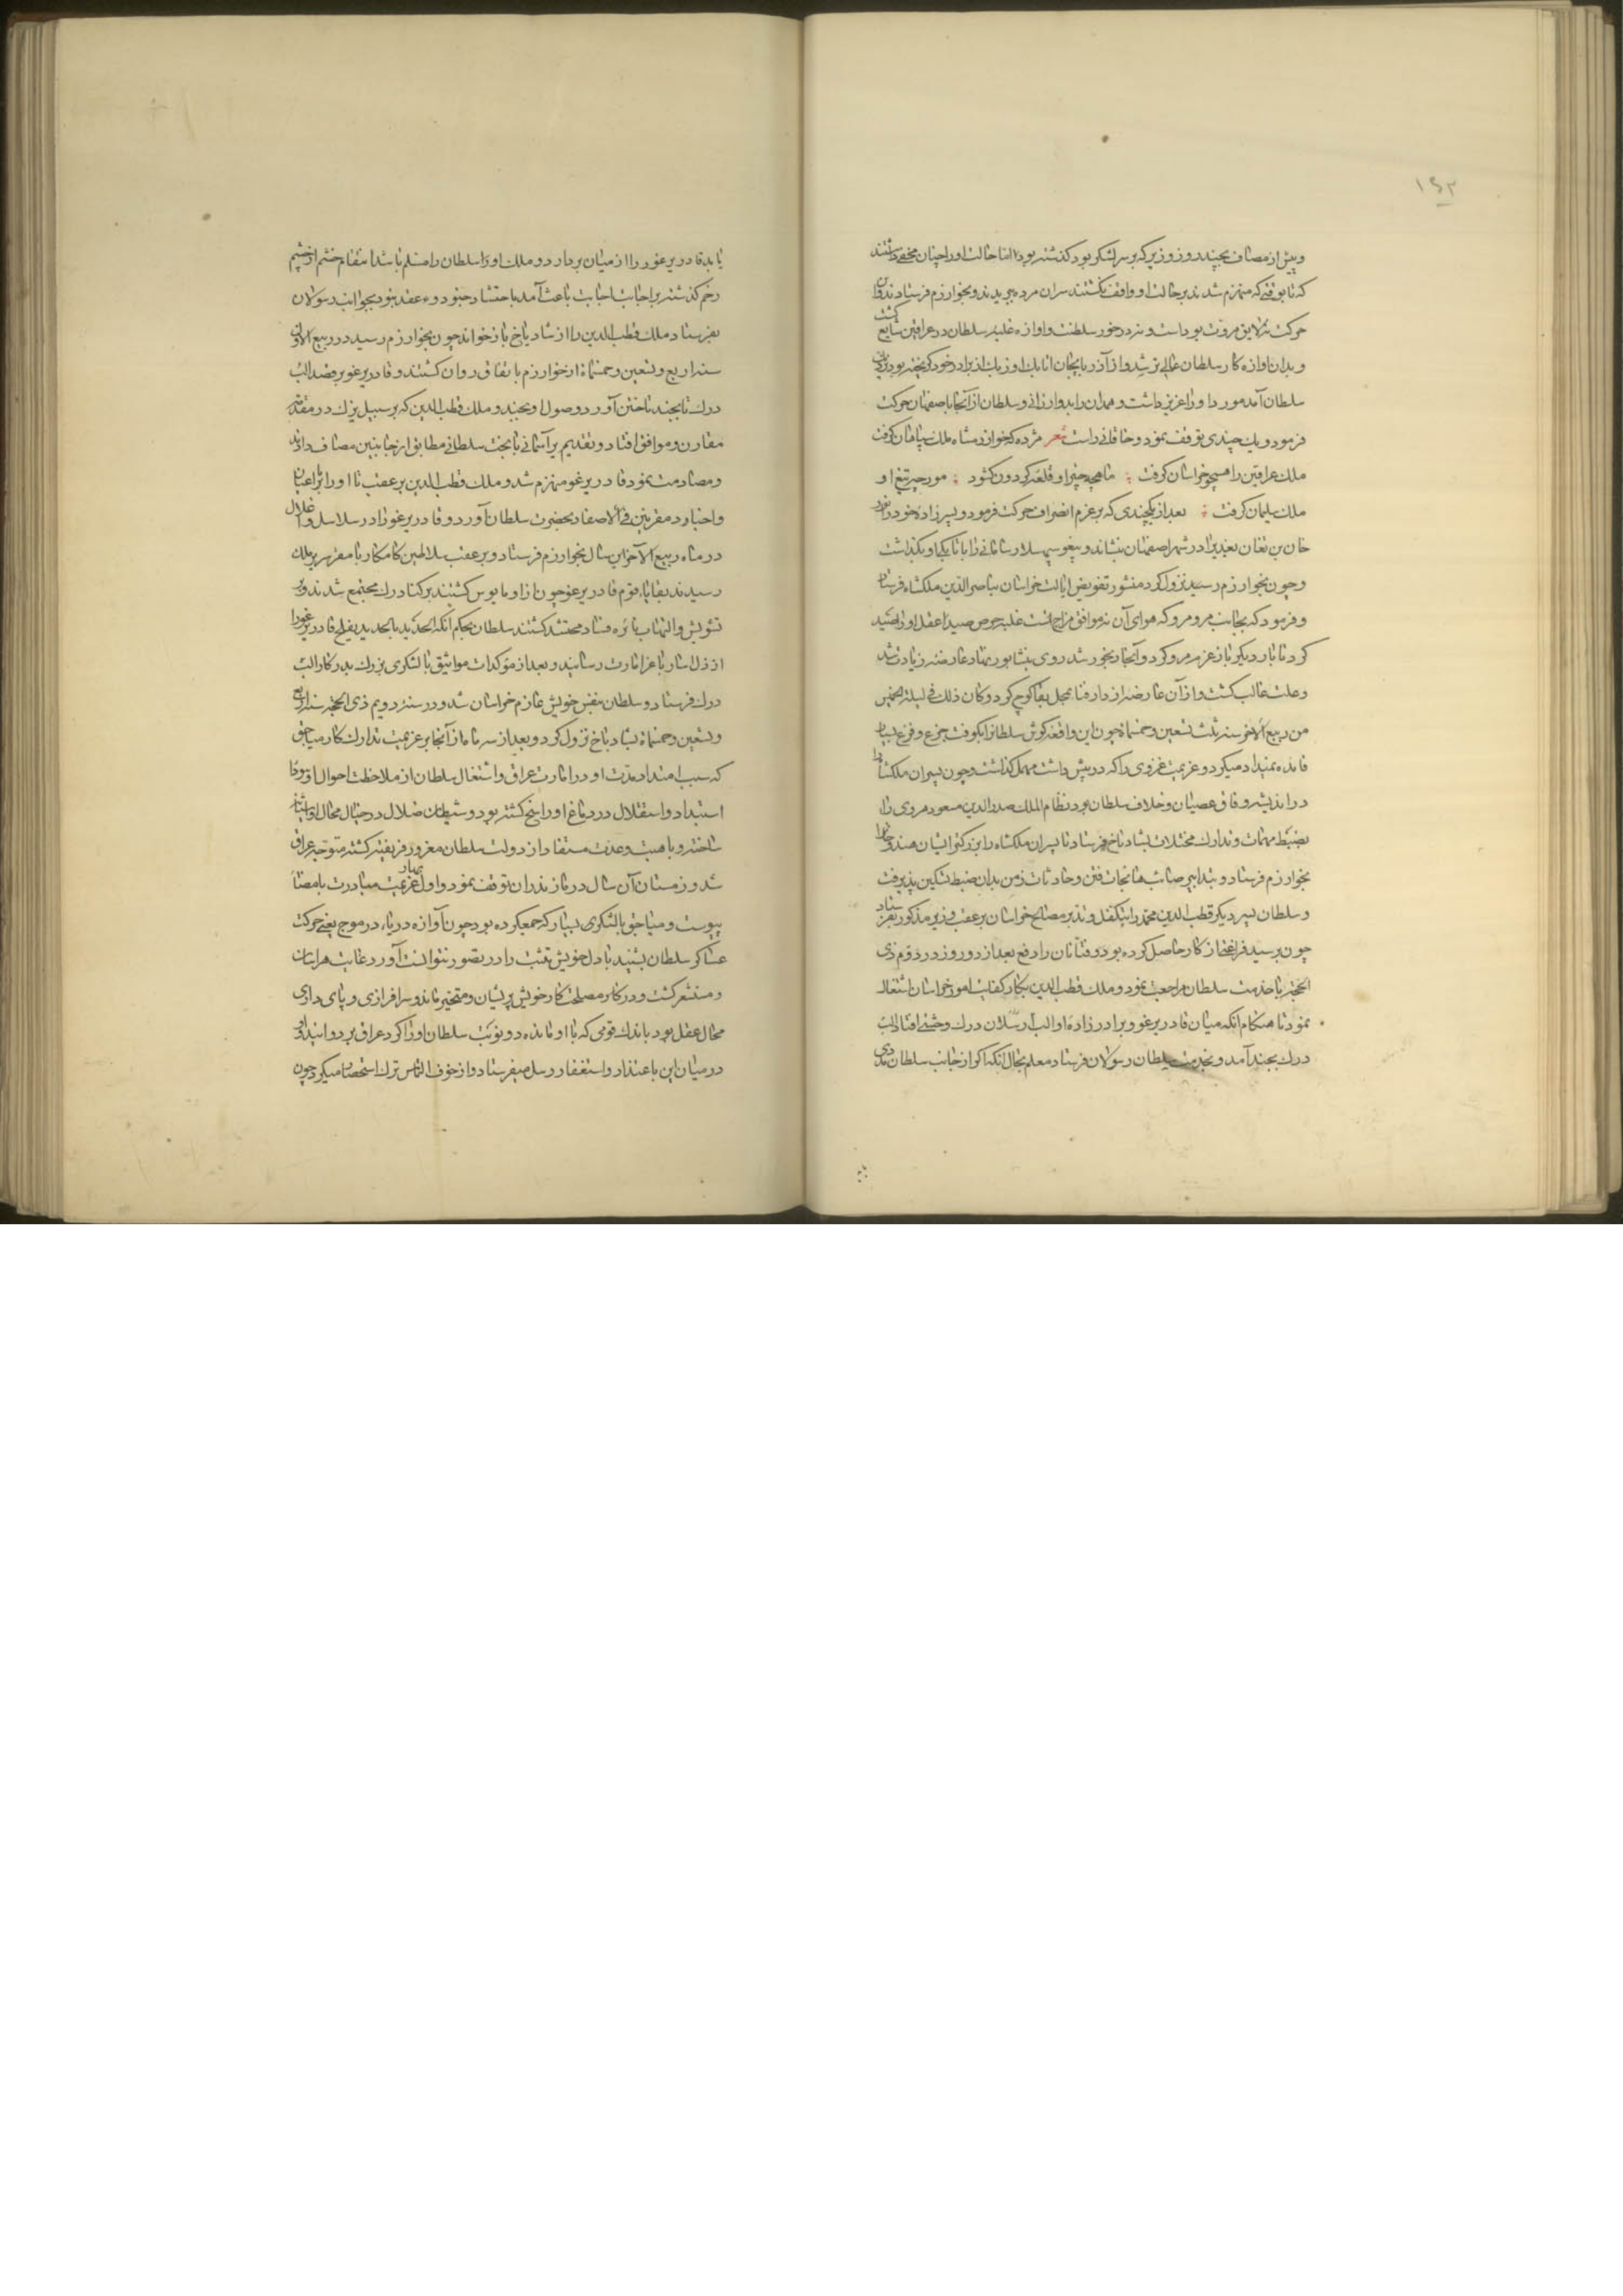 ۱۶۲
وپیش از مصاف بچند روز وزیر که بر سر لشکر بود گذشته بود اما حالت او را چنان مخفی داشتند
که تا بوقتی که منهزم شدند بر حالت او واقف نگشتند سران مرده ببریدند و بخوارزم فرستادند و این
حرکت نه لایق مروت بودست و نه در خور سلطنت و اوازه غلبه سلطان در عراقین شایع گشت
و بدان اوازه کار سلطان عالی تر شد و از آذربایجان اتابک اوزبک از برادر خود گریخته بود بر
سلطان آمد مورد او را عزیز داشت و همدان را بدو ارزانی و سلطان از آنجا باصفهان حرکت
فرمود و یک چندی توقف نمود و خاقانی راست شعر مژده که خوارزمشاه ملک سپاهان گرفت
ملک عراقین را همچو خراسان گرفت ماهچه چتر او قلعه گردون گشود مورچه تیغ او
ملک سلیمان گرفت بعد از یکچندی که بر عزم انصراف حرکت فرمود و پسر زاده خود را
خان بن تغان بغدی را در شهر اصفهان بنشاند و بیغو سپهسلار سامانی را باتابکی او بگذاشت
وچون بخوارزم رسید نزول کرد منشور تفویض ایالت خراسان بناصر الدین ملکشاه فرستاد
و فرمود که بجانب مرو مرو که هوای آن نه موافق مزاج تست غلبه حرص صید عقل او را صید
کرد تا بار دیگر باز عزم مرو کرد و آنجا رنجور شد روی بنشابور نهاد عارضه زیادت شد
وعلت غالب گشت و از آن عارضه از دار فنا بمحل بقا کوچ کرد و کان ذلک فی لیلة الخمیس
من ربیع الاخر سنه ثلث تسعین و خمسمائة چون این واقعه گوش سلطان را بکوفت جزع و فزع بی
فائده میکرد و عزیمت غزوی را که در پیش داشت مهمل گذاشت وچون پسران ملکشاه را
در اندیشه وفاق عصیان و خلاف سلطان بود نظام الملک صدر الدین مسعود هروی را
بضبط مهمات و تدارک مختلات بشادیاخ فرستاد تا پسران ملکشاه را بزرگتر ایشان هندو خان را
بخوارزم فرستاد و بتدابیر صائب هایجات فتن و حادثات زمن بدان ضبط تسکین پذیرفت
و سلطان پسر دیگر قطب الدین محمد را بتکفل و تدبر مصالح خراسان بر عقب وزیر مذکور بفرستاد
چون برسید فراغت از کار حاصل کرده بود و فتانان را دفع بعد از دو روز در دوم ذی
الحجه با خدمت سلطان مراجعت نمود و ملک قطب الدین بکار کفایت امور خراسان اشتغال
نمود تا هنگام آنکه میان قادر بوغو و برادر زادۀ او الب ارسلان درک وحشتی افتاد الب
درک بجند آمد و بخدمت سلطان رسولان فرستاد معلم بحال آنکه اگر از جانب سلطان مددی
یابد قادر برغو را از میان بردارد و ملک او را سلطان را مسلم باشد انتقام خشم از خشم
زخم گذشته بر اجابت اجابت باعث آمد باحتشاد جنود و عقد بنود بجوانب رسولان
بفرستاد ملک قطب الدین را از شادیاخ باز خواند چون بخوارزم رسید در ربیع الاول
سنه اربع وتسعین وخمسمائة از خوارزم باتفاق روان گشتند و قادر برغو بر قصد الب
درک تا بجند تاختن آورد وصول او بجند و ملک قطب الدین که بر سبیل یزک در مقدمه
مقارن و موافق افتاد و تقدیر آسمانی با بخت سلطانی مطابق از جانبین مصاف دادند
ومصادمت نمود قادر برغو منهزم شد و ملک قطب الدین بر عقب تا او را با اعیان
واجناد مقرنین فی الاصفاد بحضرت سلطان آورد و قادر برغو را در سلاسل و اغلال
در ماه ربیع الآخر این سال بخوارزم فرستاد و بر عقب سلاطین کامکار با مقر سریر ملک
رسیدند بقایاء قوم قادر برغو چون از او مایوس گشتند بر کنار درک مجتمع شدند و بر
تشویش و التهاب نائره فساد محتشد گشتند سلطان بحکم آنکه الحدید بالحدید یفلح قادر برغو را
از ذل اسار با عز امارت رسانید و بعد از موکدات مواثیق با لشکری بزرک بدر کار الب
درک فرستاد و سلطان بنفس خویش عازم خراسان شد و در سنه دویم ذی الحجه سنه اربع
وتسعین وخمسمائة بشادیاخ نزول کرد و بعد از سه ماه از آنجا بر عزیمت تدارک کار میاجق
که سبب امتداد مدت او در امارت عراق و اشتغال سلطان از ملاحظت احوال او
استبداد و استقلال در دماغ او راسخ گشته بود و شیطان ضلال در خیال محال او آشیانه
ساخته و باهبت و عدت مستفاد از دولت سلطان مغرور فریفته گشته متوجه عراق
شد و زمستان آن سال در مازندران توقف نمود و اول بهار عزیمت مبادرت بامضا
پیوست و میاجق با لشکری بسیار که جمع کرده بود چون آوازه دریاء در موج یعنی حرکت
عساکر سلطان بشنید با دل خویش تثبت را در تصور نتوانست آورد غایت هراسان
و مستشعر گشت و در کار مصلحت کار خویش پریشان و متحیر ماند و سرافرازی و پای داری
محال عقل بود با اندک قومی که با او مانده دو نوبت سلطان او را گرد عراق بر دوانید و او
در میان این باعتذار و استغفار رسل میفرستاد و از خوف التماس ترک استحضار میکرد چون